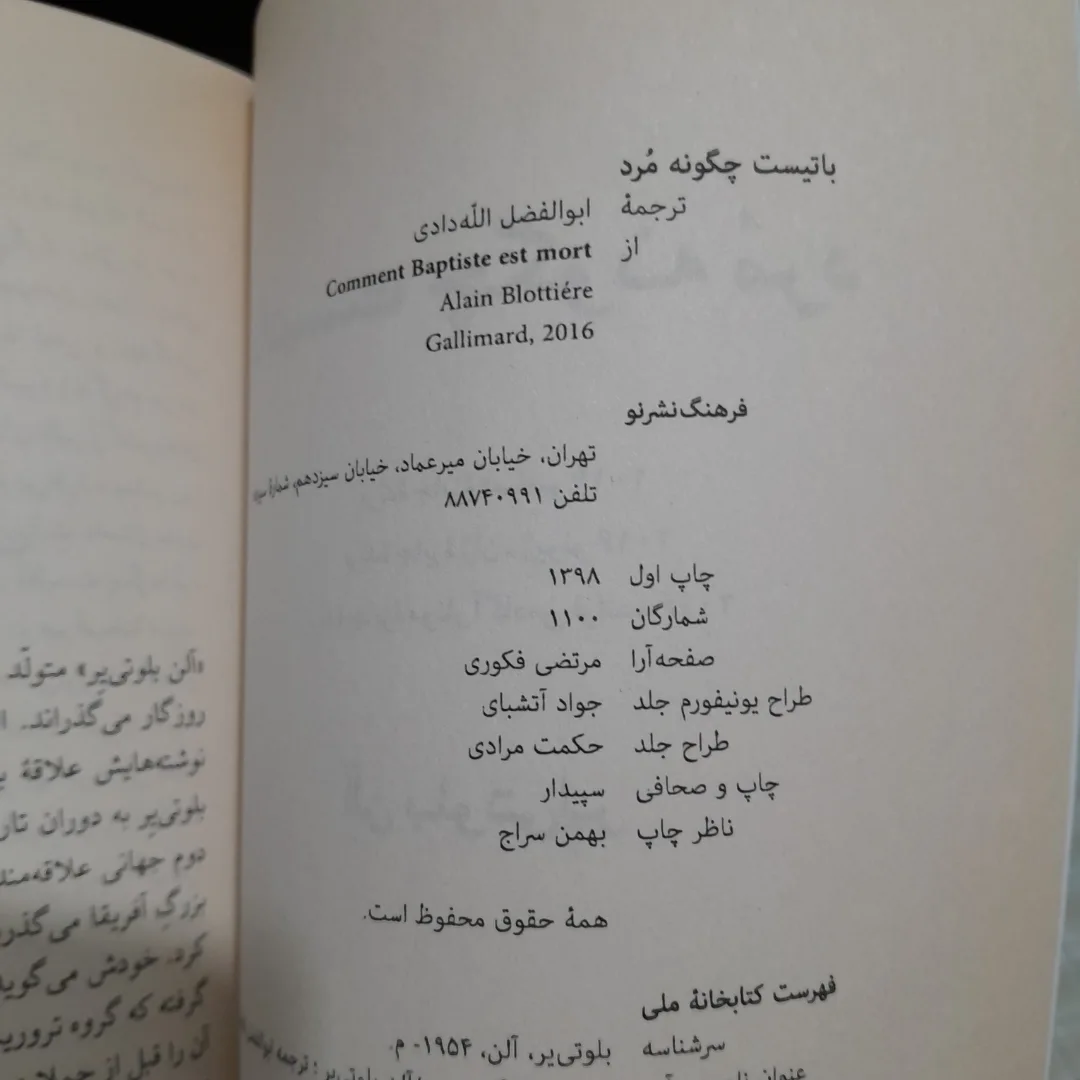 باتیست چگونه مُرد
ترجمهٔ ابوالفضل الله‌دادی
از Comment Baptiste est mort
Alain Blottiére
Gallimard, 2016
فرهنگ‌نشرنو
تهران، خیابان میرعماد، خیابان سیزدهم، شمارهٔ
تلفن ۸۸۷۴۰۹۹۱
چاپ اول ۱۳۹۸
شمارگان ۱۱۰۰
صفحه‌آرا مرتضی فکوری
طراح یونیفورم جلد جواد آتشبای
طراح جلد حکمت مرادی
چاپ و صحافی سپیدار
ناظر چاپ بهمن سراج
همهٔ حقوق محفوظ است.
فهرست کتابخانهٔ ملی
سرشناسه بلوتی‌یر، آلن، ۱۹۵۴- م.
«آلن بلوتی‌یر» متولّد
روزگار می‌گذراند.
نوشته‌هایش علاقهٔ
بلوتی‌یر به دوران
دوم جهانی علاقه‌مند
بزرگِ آفریقا
کرد. خودش می‌گوید
گرفته که گروه
آن را قبل از